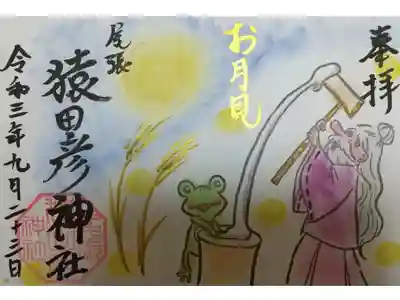 奉拝
お月見
尾張
猿田彦神社
令和三年九月二十三日